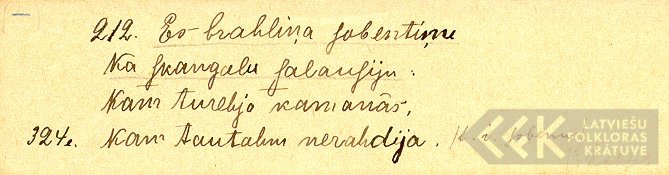 212. Es brahliņa sobentiņu
Na skangalu salausiju:
Kam turehja kamanâs,
324. Kam tautahm nerahdija.
LATVIEŠU
FOLKLORAS
KRĀTUVE